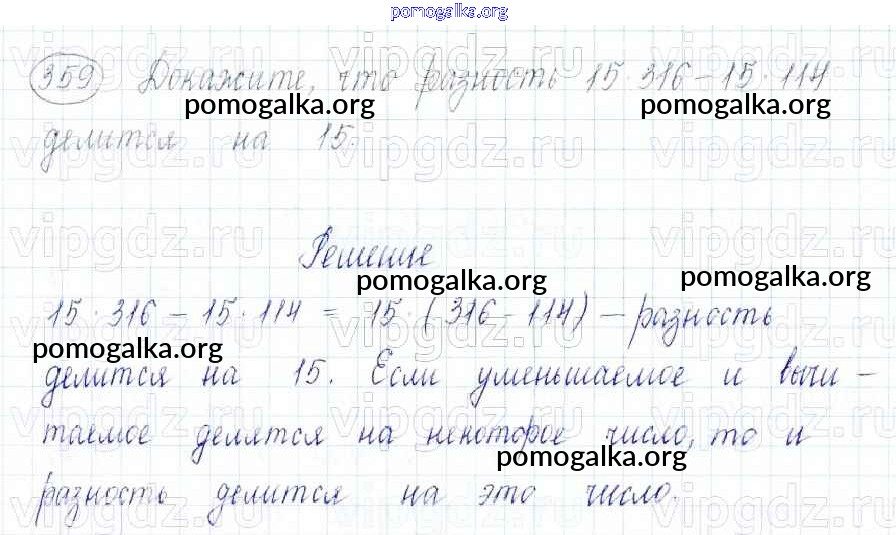 pomogalka.org
359 Докажите, что разность 15·316-15·114
pomogalka.org pomogalka.org
делится на 15.
vipgdz.ru vipgdz.ru vipgdz.ru
Решение
pomogalka.org pomogalka.org
15·316-15·114 = 15·(316-114) - разность
pomogalka.org
делится на 15. Если уменьшаемое и вычи-
таемое делятся на некоторое число, то и
pomogalka.org
разность делится на это число.
vipgdz.ru vipgdz.ru vipgdz.ru